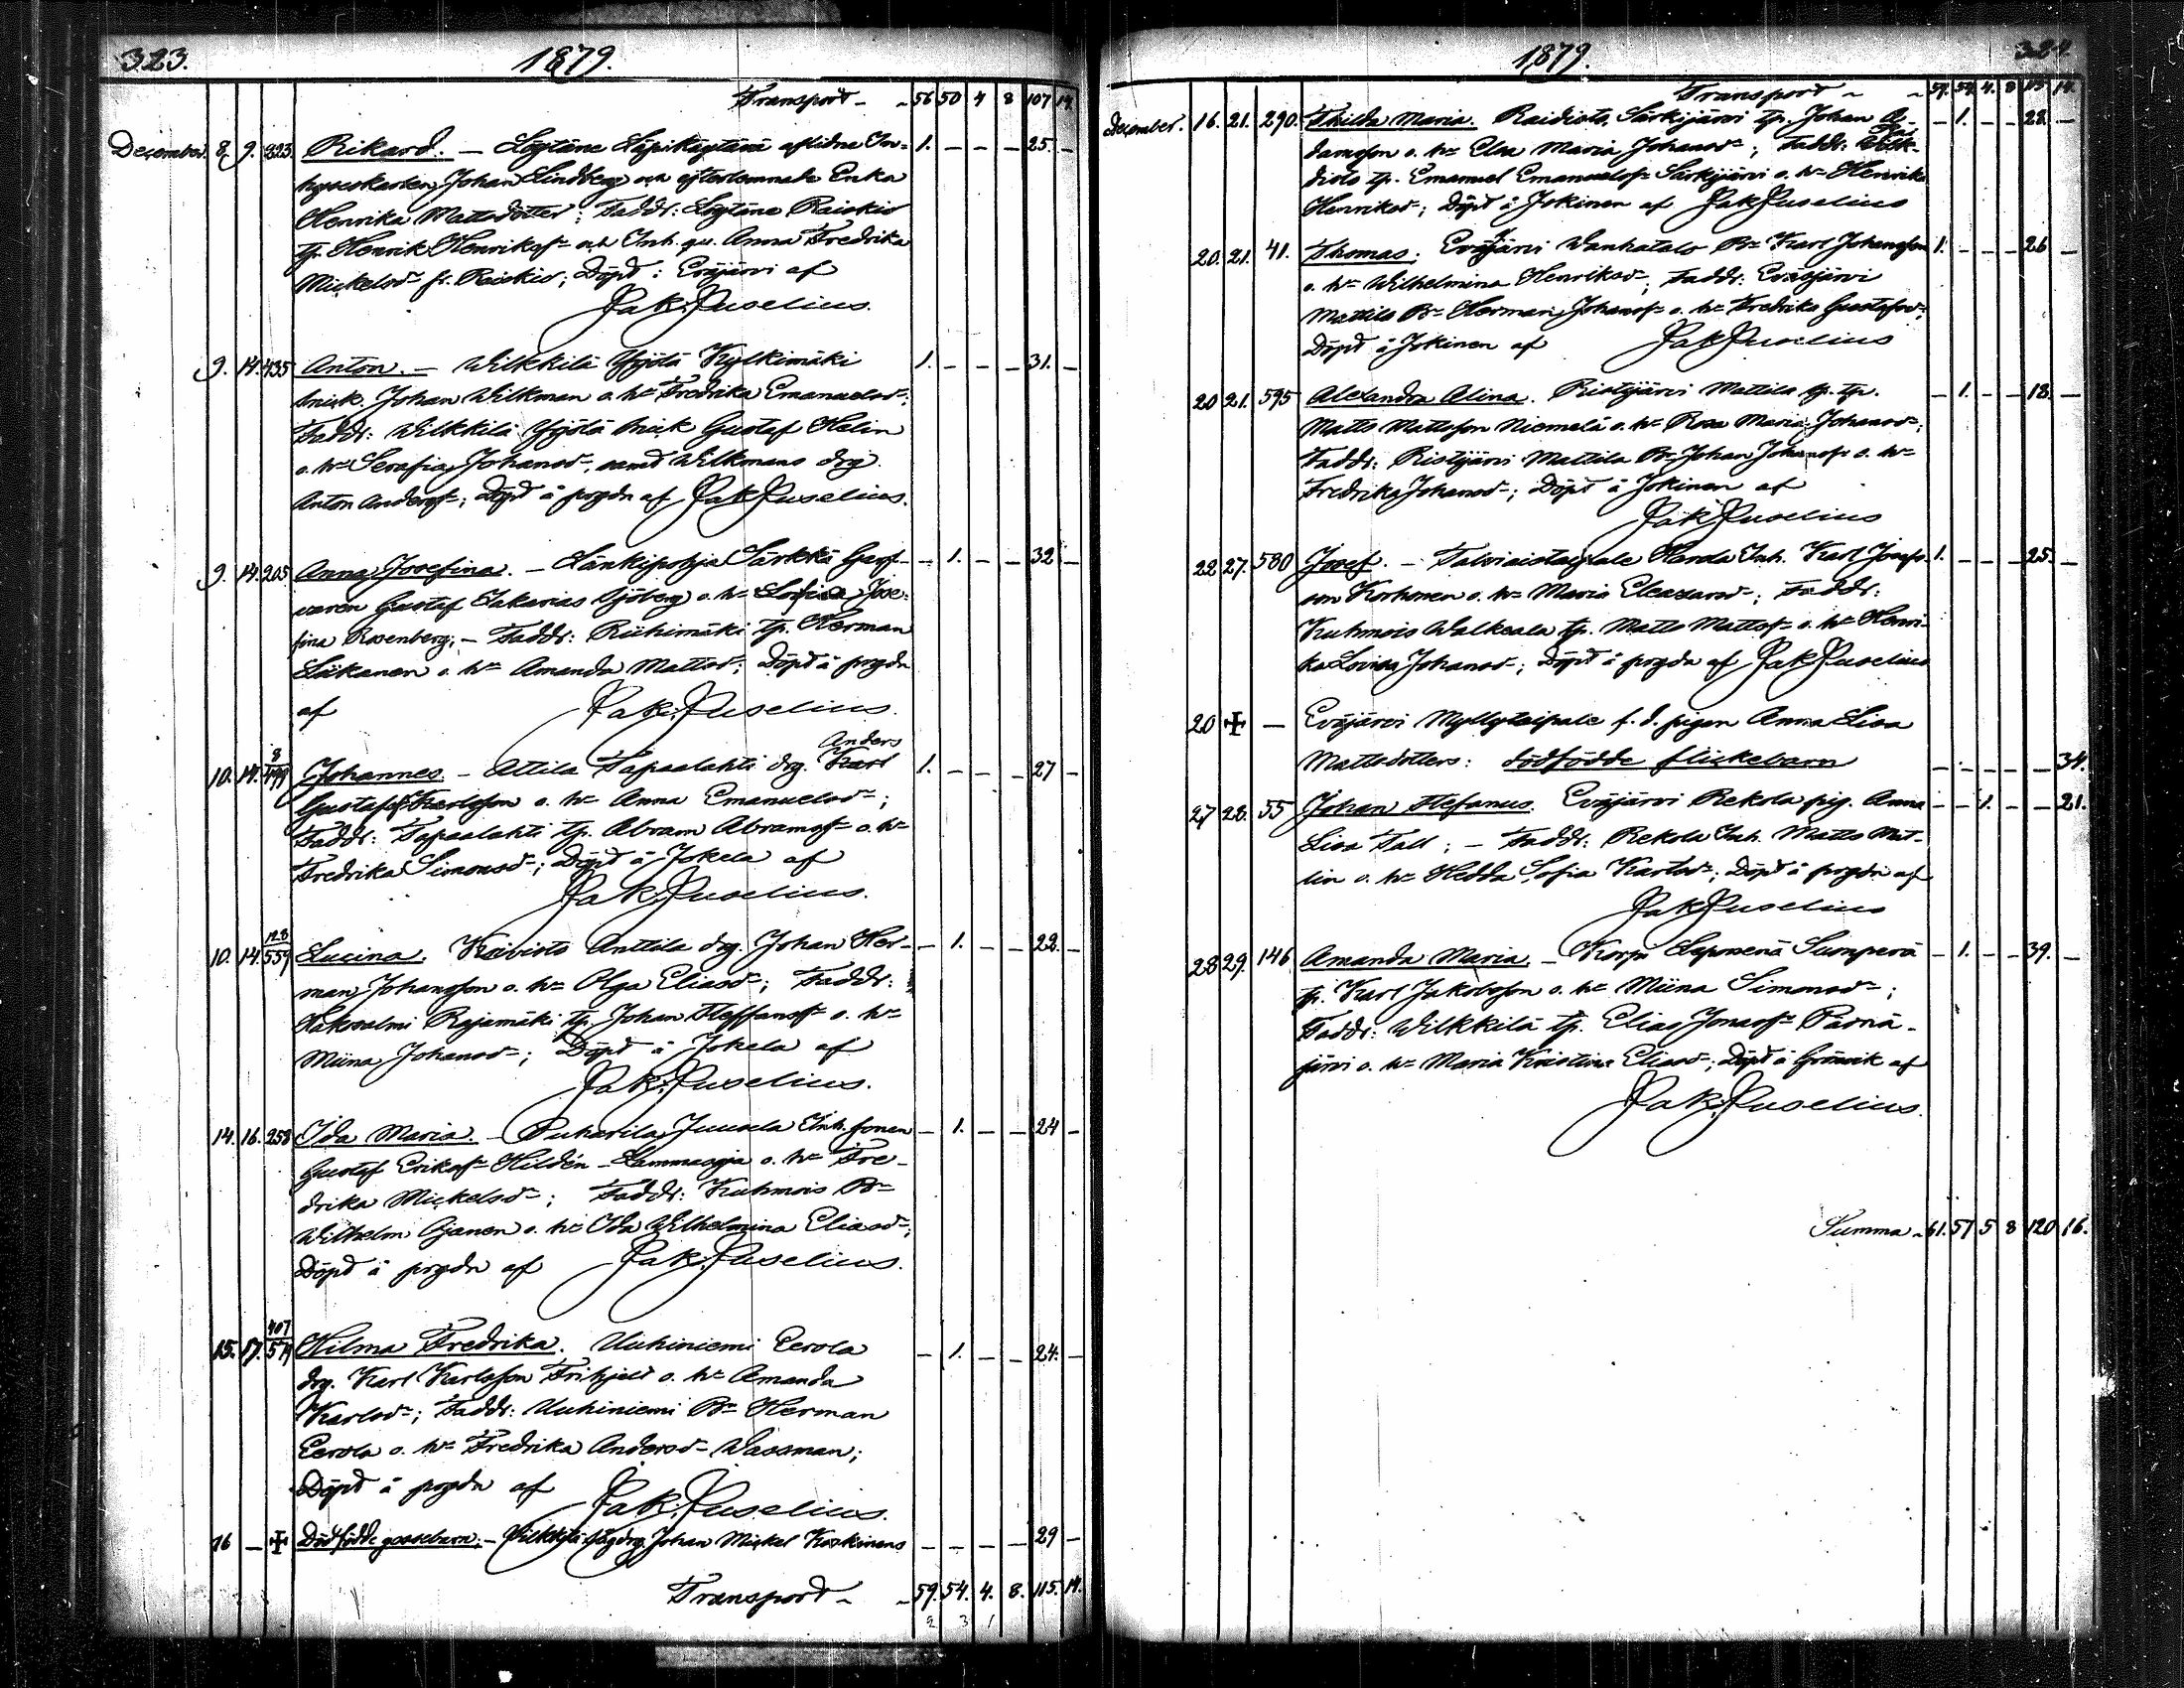 323.
1879.
Transport - - 56 50 4 8 107 14.
December. 8. 9. 323. Rikard. — Löytäne Läpikäytävä aflidne In- 1. — — — 25. —
hyseskarlen Johan Lindberg och efterlemnade Enka
Henrika Mattsdotter; Faddr: Löytäne Raiskio
tp. Henrik Henriksson och Inh. qv. Anna Fredrika
Mickelsd. fr. Raiskio; Döpt i Eväjärvi af
Jak. Juselius.
9. 14. 435 Anton. — Wilkkilä Yijälä Kylkimäki 1. — — — 31. —
snick. Johan Wilkman o. h. Fredrika Emanuelsd.;
Faddr: Wilkkilä Yijälä snick Gustaf Helin
o. h. Serafia Johansd., samt Wilkmans drg.
Anton Andersf.; Döpt å prgdn af Jak. Juselius.
9. 14. 205 Anna Josefina. — Länkipohja Särkkä Garf- — 1. — — 32 —
varen Gustaf Sakarias Sjöberg o. h. Lovisa Jose-
fina Rosenberg; — Faddr: Riihimäki tp. Herman
Läkanen o. h. Amanda Mattsd.; Döpt å prgdn
af Jak. Juselius.
Anders
10. 14. 8/499 Johannes — Attila Tapsalahti drg. Karl 1. — — — 27 —
Gustafsf. Karlsson o. h. Anna Emanuelsd.;
Faddr: Tapsalahti tp. Abram Abramsf. o. h.
Fredrika Simonsd.; Döpt å Jokela af
Jak. Juselius.
10. 14. 128/559 Lucina. Koivisto Anttila drg. Johan Her- — 1. — — 22. —
man Johansson o. h. Olga Eliasd.; Faddr:
Hakosalmi Rajamäki tp. Johan Steffansf. o. h.
Miina Johansd.; Döpt å Jokela af
Jak. Juselius.
14. 16. 258 Ida Maria. — Puharila Juusela Inh. sonen — 1. — — 24 —
Gustaf Eriksf. Hildén — Lammasoja o. h. Fre-
drika Mickelsd.; Faddr: Kuhmois B.
Wilhelm Ojanen o. h. Ida Wilhelmina Eliasd.;
Döpt å prgdn af Jak. Juselius.
15. 17. 407/579 Hilma Fredrika. Uuhiniemi Eerola — 1. — — 24. —
drg. Karl Karlsson Frihjelt o. h. Amanda
Karlsd.; Faddr: Uuhiniemi B. Herman
Eerola o. h. Fredrika Andersd. Wassman;
Döpt å prgdn af Jak. Juselius.
16 — ✠ Dödfödde gossebarn; — Wilkkilä drg. Johan Mickel Koskinens — — — — 29 —
Transport - - 59. 54. 4. 8. 115. 14.
2 3 1
324
1879.
Transport - - 59. 54. 4. 8 115 14.
December. 16. 21. 290. Thilda Maria. Raidisto, Särkijärvi tp. Johan A- — 1. — — 28. —
damsson o. h. Elsa Maria Johansd.; Faddr: Rai-
disto tp. Emanuel Emanuelsf. Särkijärvi o. h. Henrika
Henriksd.; Döpt å Jokinen af Jak Juselius
20. 21. 41. Thomas. Eväjärvi Wanhatalo B. Karl Johansson 1. — — — 26 —
o. h. Wilhelmina Henriksd.; Faddr: Eväjärvi
Mattila B. Herman Johansf. o. h. Fredrika Gustafsd.;
Döpt å Jokinen af Jak Juselius
20 21. 595 Alexandra Alina. Ristijärvi Mattila tp.
Matts Mattsson Niemelä o. h. Rosa Maria Johansd.; — 1. — — 18. —
Faddr: Ristijärvi Mattila B. Johan Johansf. o. h.
Fredrika Johansd.; Döpt å Jokinen af
Jak Juselius
22 27. 580 Josef. — Talviaistaipale Harda Inh. Karl Josefs- 1. — — — 25. —
son Korhonen o. h. Maria Eleazarsd.; Faddr:
Kuhmois Walkeala tp. Matts Mattsf. o. h. Henri-
ka Lovisa Johansd.; Döpt å prgdn af Jak Juselius
20 ✠ — Eväjärvi Myllytaipale f. d. pigan Anna Lisa
Mattsdotters: dödfödde flickebarn — — — — — 34.
27 28. 55 Johan Stefanus. Eväjärvi Rekola pig. Anna — — 1. — — 21.
Lisa Fall; — Faddr: Rekola Inh. Matts Mat-
lin o. h. Hedda Sofia Karlsd.; Döpt å prgdn af
Jak Juselius
28 29. 146 Amanda Maria. — Korpi Leponenä Sumperä — 1. — — 39. —
tp. Karl Jakobsson o. h. Miina Simonsd.;
Faddr: Wilkkilä tp. Elias Jonasf. Pärnä-
järvi o. h. Maria Kristina Eliasd.; Döpt å Grönvik af
Jak. Juselius.
Summa - 61. 57 5 8 120 16.